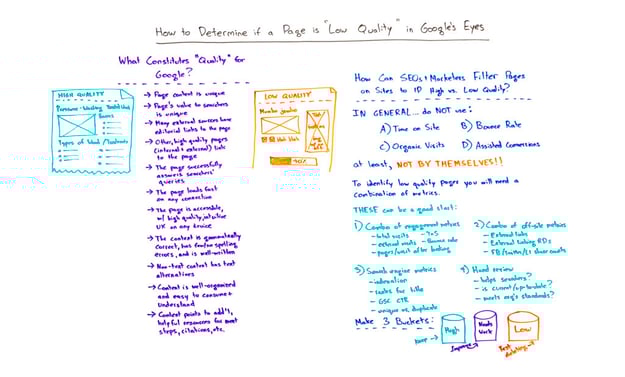 How to Determine if a Page is "Low Quality" in Google's Eyes
What Constitutes "Quality" for
Google?
HIGH QUALITY
Types of
LOW QUALITY
→ Page content is unique
→ Page's value to searchers
is unique
→ Many external sources have
editorial links to the page
→ Other, high quality pages
(internal + external) link
to the page
→ The page successfully
answers searchers'
queries
→ The page loads fast
on any connection
→ The page is accessible,
w/ high quality, intuitive
UX on any device
→ The content is grammatically
correct, has few/no spelling
errors, and is well-written
→ Non-text content has text
alternatives
→ Content is well-organized
and easy to consume +
understand
→ Content points to add'l,
helpful resources for next
steps, citations, etc.
How Can SEOs + Marketers Filter Pages
on Sites to ID High vs. Low Quality?
IN GENERAL... do NOT use:
A) Time on Site B) Bounce Rate
C) Organic Visits D) Assisted Conversions
at least, NOT BY THEMSELVES!!
To identify low quality pages you will need a
combination of metrics.
THESE can be a good start:
1) Combo of engagement metrics
- total visits
- external visits - Bounce rate
- pages/visit after landing
2) Combo of off-site metrics
- External links
- External linking RDs
3) Search engine metrics
- indexation
- ranks for title
- GSC CTR
- unique vs. duplicate
4) Hand review
- helps searchers?
- is current/up-to-date?
- meets org's standards?
Make 3 Buckets:
High
Needs
Work
Low
Improve